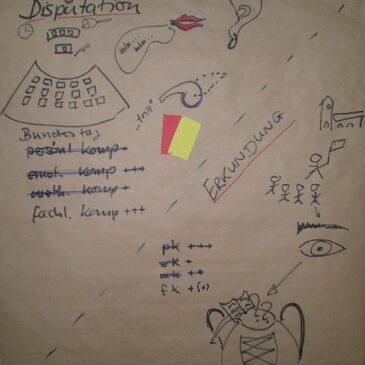 Disputation
bla..
bla..
"trill"
Bundestag
persönl komp +
emot. komp +++
meth. komp +
fachl. komp +++
ERKUNDUNG
pk +++
ek +
mk ++
fk + (+)